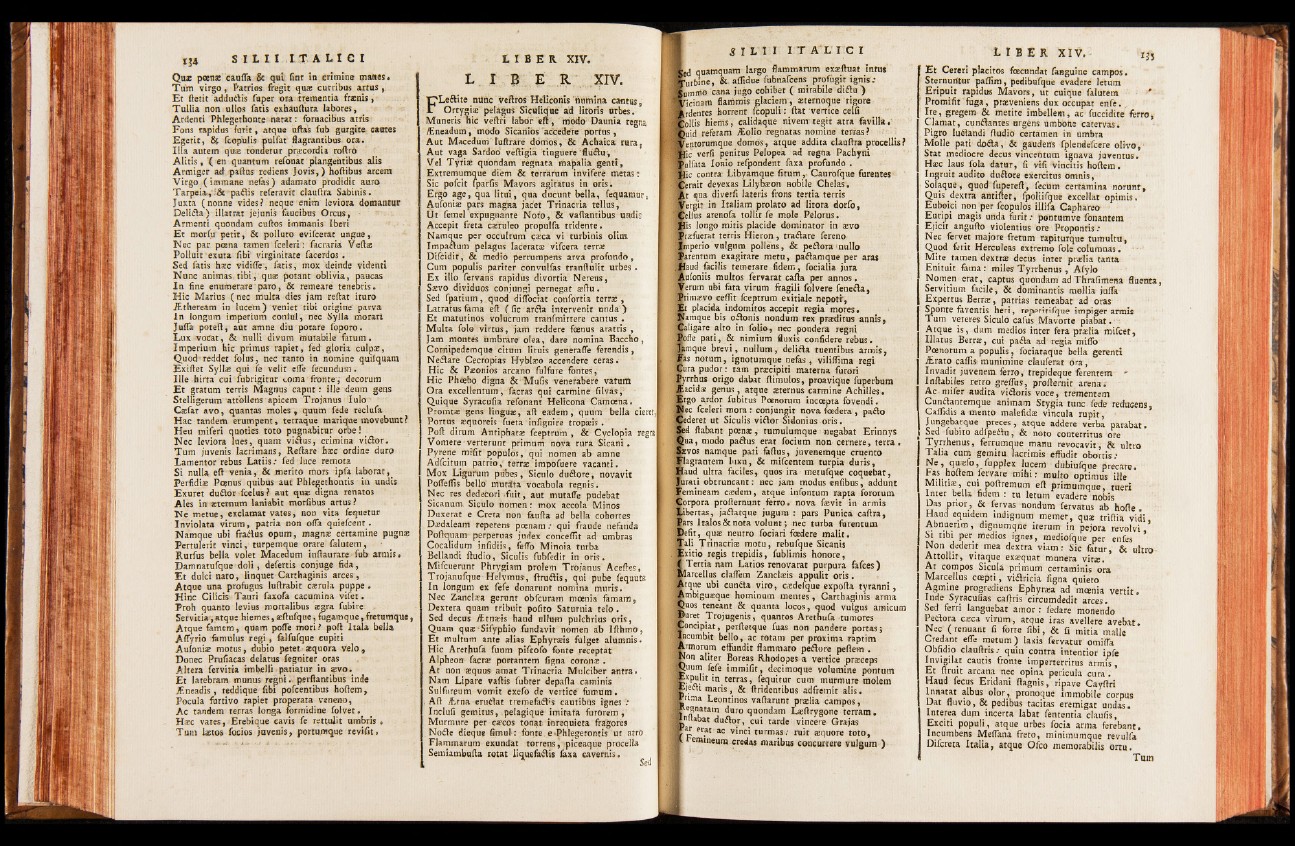 134 SILII ITALICI
Quæ pœnæ cauſſa & qui ſint in crimine manes.
Tum virgo, Patrios fregit quæ curribus artus,
Et ſtetit adductis ſuper ora trementia frænis,
Tullia non ullos ſatis exhauſtura labores,
Ardenti Phlegethonte natat: fornacibus atris
Fons rapidus furit, atque uſtas ſub gurgite cautes
Egerit, & ſcopulis pulſat flagrantibus ora.
Illa autem quæ tondetur præcordia roſtro
Alitis, (en quantum reſonat plangentibus alis
Armiger ad paſtus rediens Jovis,) hoſtibus arcem
Virgo (immane nefas) adamato prodidit auro
Tarpeia, & pactis reſeravit clauſtra Sabinis.
Juxta (nonne vides? neque enim leviora domantur
Delicta) illatrat jejunis faucibus Orcus,
Armenti quondam cuſtos immanis Iberi
Et morſu petit, & polluto eviſcerat ungue,
Nec par pœna tamen ſceleri: ſacraria Veſtæ
Polluit exuta ſibi virginitate ſacerdos.
Sed ſatis hæc vidiſſe, ſatis, mox deinde videnti
Nunc animas tibi, quæ potant oblivia, paucas
In fine enumerare paro, & remeare tenebris.
Hic Marius (nec multa dies jam reſtat ituro
Ætheream in lucem) veniet tibi origine parva
In longum imperium conſul, nec Sylla morari
Juſſa poteſt, aut amne diu potare ſoporo.
Lux vocat, & nulli divum mutabile fatum.
Imperium hic primus rapiet, ſed gloria culpæ,
Quod reddet ſolus, nec tanto in nomine quiſquam
Exiſtet Syllæ qui ſe velit eſſe ſecundum.
Ille hirta cui ſubrigitur coma fronte, decorum
Et gratum terris Magnus caput: ille deum gens
Stelligerum attollens apicem Trojanus Iulo
Cæſar avo, quantas moles, quum ſede recluſa
Hac tandem erumpent, terraque marique movebunt?
Heu miſeri quoties toto pugnabitur orbe!
Nec leviora lues, quam victus, crimina victor.
Tum juvenis lacrimans, Reſtare hæc ordine duro
Lamentor rebus Latiis: ſed luce remota
Si nulla eſt venia, & merito mors ipſa laborat,
Perfidiæ Pœnus quibus aut Phlegethontis in undis
Exuret ductor ſcelus? aut quæ digna renatos
Ales in æternum laniabit morſibus artus?
Ne metue, exclamat vates, non vita ſequetur
Inviolata virum, patria non oſſa quieſcent.
Namque ubi fractus opum, magnæ certamine pugnæ
Pertulerit vinci, turpemque orare ſalutem,
Rurſus bella volet Macedum inſtaurare ſub armis.
Damnatuſque doli, deſertis conjuge fida,
Et dulci nato, linquet Carthaginis arces,
Atque una profugus luſtrabit cærula puppe.
Hinc Cilicis Tauri ſaxoſa cacumina viſet.
Proh quanto levius mortalibus ægra ſubire
Servitia, atque hiemes, æſtuſque, fugamque, fretumque,
Atque famem, quam poſſe mori? poſt Itala bella
Aſſyrio famulus regi, falſuſque cupiti
Auſoniæ motus, dubio petet æquora velo,
Donec Pruſiacas delatus ſegniter oras
Altera ſervitia imbelli patiatur in ævo.
Et latebram munus regni. perſtantibus inde
Æneadis, reddique ſibi poſcentibus hoſtem,
Pocula furtivo rapiet properata veneno,
Ac tandem terras longa formidine ſolvet.
Hæc vates, Erebique cavis ſe rettulit umbris.
Tum lætos ſocios juvenis, portumque reviſit.
LIBER XIV.
LIBER XIV.
FLectite nunc veſtros Heliconis numina cantus,
Ortygiæ pelagus Siculique ad litoris urbes.
Muneris hic veſtri labor eſt, modo Daunia regna
Æneadum, modo Sicanios accedere portus,
Aut Macedum luſtrare domos, & Achaica rura,
Aut vaga Sardoo veſtigia tinguere fluctu,
Vel Tyriæ quondam regnata mapalia genti,
Extremumque diem & terrarum inviſere metas:
Sic poſcit ſparſis Mavors agitatus in oris.
Ergo age, qua litui, qua ducunt bella, ſequamur,
Auſoniæ pars magna jacet Trinacria tellus,
Ut ſemel expugnante Noto, & vaſtantibus undis
Accepit freta cæruleo propulſa tridente.
Namque per occultrum cæca vi turbinis olim
Impactum pelagus laceratæ viſcera terræ
Diſcidit, & medio perrumpens arva profundo,
Cum populis pariter convulſas tranſtulit urbes.
Ex illo ſervans rapidus divortia Nereus,
Sævo dividuos conjungi pernegat æſtu.
Sed ſpatium, quod diſſociat conſortia terræ,
Latratus fama eſt (ſic arcta intervenit unda)
Et matutinos volucrum tranſmittere cantus.
Multa ſolo virtus, jam reddere fœnus aratris,
Jam montes umbrare olea, dare nomina Baccho,
Cornipedemque citum lituis generaſſe ferendis,
Nectare Cecropias Hyblæo accendere ceras.
Hic & Pæonios arcano ſulfure fontes,
Hic Phœbo digna & Muſis venerabere vatum
Ora excellentum, ſacras qui carmine ſilvas,
Quique Syracuſia reſonant Helicona Camœna.
Promtæ gens linguæ, aſt eadem, quum bella cieret,
Portus æquoreis ſueta inſignire tropæis.
Poſt dirum Antiphatæ ſceptrum, & Cyclopia regna
Vomere verterunt primum nova rura Sicani.
Pyrene miſit populos, qui nomen ab amne
Adſcitum patrio, terræ impoſuere vacanti.
Mox Ligurum pubes, Siculo ductore, novavit
Poſſeſſis bello mutata vocabula regnis.
Nec res dedecori fuit, aut mutaſſe pudebat
Sicanum Siculo nomen: mox accola Minos
Duxerat e Creta non fauſta ad bella cohortes
Dædaleam repetens pœnam: qui fraude nefanda
Poſtquam perpetuas judex conceſſit ad umbras
Cocalidum inſidiis, feſſo Minoia turba
Bellandi ſtudio, Siculis ſubſedit in oris.
Miſcuerunt Phrygiam prolem Trojanus Aceſtes,
Trojanuſque Helymus, ſtructis, qui pube ſequuta
In longum ex ſeſe donarunt nomina muris.
Nec Zanclæa gerunt obſcuram mœnia famam,
Dextera quam tribuit poſito Saturnia telo.
Sed decus Ætnæis haud ullum pulchrius oris,
Quam quæ Siſyphio fundavit nomen ab Iſthmo,
Et multum ante alias Ephyræis fulget alumnis.
Hic Arethuſa ſuum piſcoſo fonte receptat
Alpheon ſacræ portantem ſigna coronæ.
At non æquus amat Trinacria Mulciber antra.
Nam Lipare vaſtis ſubter depaſta caminis
Sulfureum vomit exeſo de vertice fumum.
Aſt Ætna eructat tremefactis cautibus ignes
Incluſi gemitus, pelagique imitata furorem,
Murmure per cæcos tonat irrequieta fragores
Nocte dieque ſimul: fonte e Phlegetontis ut atro
Flammarum exundat torrens, piceaque procella
Semiambuſta rotat liquefactis ſaxa cavernis.
Sed
SILII ITALICI
Sed quamquam largo flammarum exæſtuat intus
Turbine, & aſſidue ſubnaſcens profugit ignis:
Summo cana jugo cohibet (mirabile dictu)
Vicinam flammis glaciem, æternoque rigore
Ardentes horrent ſcopuli: ſtat vertice celſi
Collis hiems, calidaque nivem tegit atra favilla.
Quid referam Æolio regnatas nomine terras?
Ventorumque domos, atque addita clauſtra procellis?
Hic verſi penitus Pelopea ad regna Pachyni
Pulſata Ionio reſpondent ſaxa profundo.
Hic contra Libyamque ſitum, Cauroſque furentes
Cernit devexas Lilybæon nobile Chelas.
At qua diverſi lateris frons tertia terris
Vergit in Italiam prolato ad litora dorſo,
Celſus arenoſa tollit ſe mole Pelorus.
His longo mitis placide dominator in ævo
Præfuerat terris Hieron, tractare ſereno
Imperio vulgum pollens, & pectora nullo
Parentum exagitare metu, pactamque per aras
Haud facilis temerare fidem, ſocialia jura
Auſoniis multos ſervarat caſta per annos.
Verum ubi fata virum fragili ſolvere ſenecta,
Primævo ceſſit ſceptrum exitiale nepoti,
Et placida indomitos accepit regia mores.
Namque bis octonis nondum rex præditus annis,
Caligare alto in ſolio, nec pondera regni
Poſſe pati, & nimium fluxis confidere rebus.
Jamque brevi, nullum, delicta tuentibus armis,
Fas notum, ignotumque nefas, viliſſima regi
Cura pudor: tam præcipiti materna furori
Pyrrhus origo dabat ſtimulos, proavique ſuperbum
Æacidæ genus, atque æternus carmine Achilles.
Ergo ardor ſubitus Pœnorum incœpta fovendi.
Nec ſceleri mora: conjungit nova fœdera, pacto
Cederet ut Siculis victor Sidonius oris.
Sed ſtabant pœnæ, tumulumque negabat Erinnys
Qua, modo pactus erat ſocium non cernere, terra.
Sævos namque pati faſtus, juvenemque cruento
Flagrantem luxu, & miſcentem turpia duris,
Haud ultra faciles, quos ira metuſque coquebat,
Jurati obtruncant: nec jam modus enſibus, addunt
Femineam cædem, atque inſontum rapta ſororum
Corpora proſternunt ferro. nova ſævit in armis
Libertas, jactatque jugum: pars Punica caſtra,
Pars Italos & nota volunt; nec turba furentum
Deſit, quæ neutro ſociari fœdere malit.
Tali Trinacriæ motu, rebuſque Sicanis
Exitio regis trepidis, ſublimis honore,
(Tertia nam Latios renovarat purpura faſces)
Marcellus claſſem Zanclæis appulit oris.
Atque ubi cuncta viro, cædeſque expoſta tyranni,
Ambiguæque hominum mentes, Carthaginis arma
Quos teneant & quanta locos, quod vulgus amicum
Duret Trojugenis, quantos Arethuſa tumores
Concipiat, perſtetque ſuas non pandere portas;
Incumbit bello, ac totam per proxima raptim
Armorum effundit flammato pectore peſtem.
Non aliter Boreas Rhodopes a vertice præceps
Quum ſeſe immiſit, decimoque volumine pontum
Expulit in terras, ſequitur cum murmure molem
Ejecti maris, & ſtridentibus adfremit alis.
Prima Leontinos vaſtarunt prælia campos,
Regnatam duro quondam Læſtrygone terram.
Inſtabat ductor, cui tarde vincere Grajas
Par erat ac vinci turmas: ruit æquore toto,
(Femineum credas maribus concurrere vulgum)
LIBER XIV. 135
Et Cereri placitos fœcundat ſanguine campos.
Sternuntur paſſim, pedibuſque evadere letum
Eripuit rapidus Mavors, ut cuique ſalutem
Promiſit fuga, præveniens dux occupat enſe.
Ire, gregem & metire imbellem, ac ſuccidite ferro,
Clamat, cunctantes urgens umbone catervas.
Pigro luctandi ſtudio certamen in umbra
Molle pati docta, & gaudens ſplendeſcere olivo,
Stat mediocre decus vincentum ignava juventus.
Hæc laus ſola datur, ſi viſi vincitis hoſtem.
Ingruit audito ductore exercitus omnis,
Solaque, quod ſupereſt, ſecum certamina norunt,
Quis dextra antiſtet, ſpoliiſque excellat opimis.
Euboici non per ſcopulos illiſa Capharco
Euripi magis unda furit: pontumve ſonantem
Ejicit anguſto violentius ore Propontis:
Nec fervet majore fretum rapiturque tumultu,
Quod ferit Herculeas extremo ſole columnas.
Mite tamen dextræ decus inter prælia tanta
Enituit fama: miles Tyrrhenus, Aſylo
Nomen erat, captus quondam ad Thraſimena fluenta,
Servitium facile, & dominantis mollia juſſa
Expertus Berræ, patrias remeabat ad oras
Sponte faventis heri, repetitiſque impiger armis
Tum veteres Siculo caſus Mavorte piabat.
Atque is, dum medios inter fera prælia miſcet,
Illatus Berræ, cui pacta ad regia miſſo
Pœnorum a populis, ſociataque bella gerenti
Ærato caſſis munimine clauſerat ora,
Invadit juvenem ferro, trepideque ferentem
Inſtabiles retro greſſus, proſternit arena.
Ac miſer audita victoris voce, trementem
Cunctantemque animam Stygia tunc ſede reducens,
Caſſidis a mento malefidæ vincula rupit,
Jungebatque preces, atque addere verba parabat.
Sed ſubito adſpectu, & noto conterritus ore
Tyrrhenus, ferrumque manu revocavit, & ultro
Talia cum gemitu lacrimis effudit obortis:
Ne, quæſo, ſupplex lucem dubiuſque precare.
Fas hoſtem ſervare mihi: multo optimus ille
Militiæ, cui poſtremum eſt primumque, tueri
Inter bella fidem: tu letum evadere nobis
Das prior, & ſervas nondum ſervatus ab hoſte.
Haud equidem indignum memet, quæ triſtia vidi,
Abnuerim, dignumque iterum in pejora revolvi,
Si tibi per medios ignes, medioſque per enſes
Non dederit mea dextra viam: Sic fatur, & ultro
Attollit, vitaque exæquat munera vitæ.
At compos Sicula primum certaminis ora
Marcellus cœpti, victricia ſigna quieto
Agmine progrediens Ephyræa ad mœnia vertit.
Inde Syracuſias caſtris circumdedit arces.
Sed ferri languebat amor: ſedare monendo
Pectora cæca virum, atque iras avellere avebat.
Nec (renuant ſi forte ſibi, & ſi mitia malle
Credant eſſe metum) laxis ſervatur omiſſa
Obſidio clauſtris: quin contra intentior ipſe
Invigilat cautis fronte impertererritus armis,
Et ſtruit arcana nec opina pericula cura.
Haud ſecus Eridani ſtagnis, ripave Cayſtri
Innatat albus olor, pronoque immobile corpus
Dat fluvio, & pedibus tacitas eremigat undas.
Interea dum incerta labat ſententia clauſis,
Exciti populi, atque urbes ſocia arma ferebant.
Incumbens Meſſana freto, minimumque revulſa
Diſcreta Italia, atque Oſco memorabilis ortu.
Tum